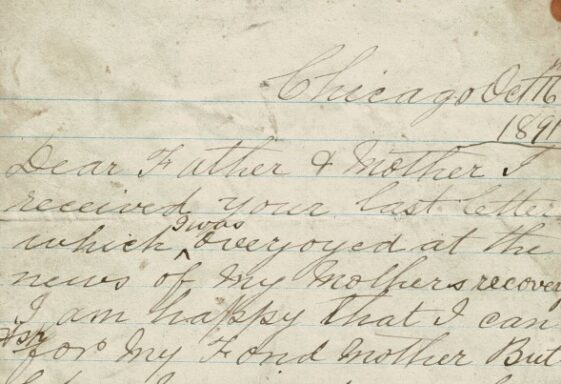 Chicago Oct 16th
1891
Dear Father & Mother I
received your last letter
I was
which ^ overjoyed at the
news of My Mothers recovery
I am happy that I can
for My Fond Mother But